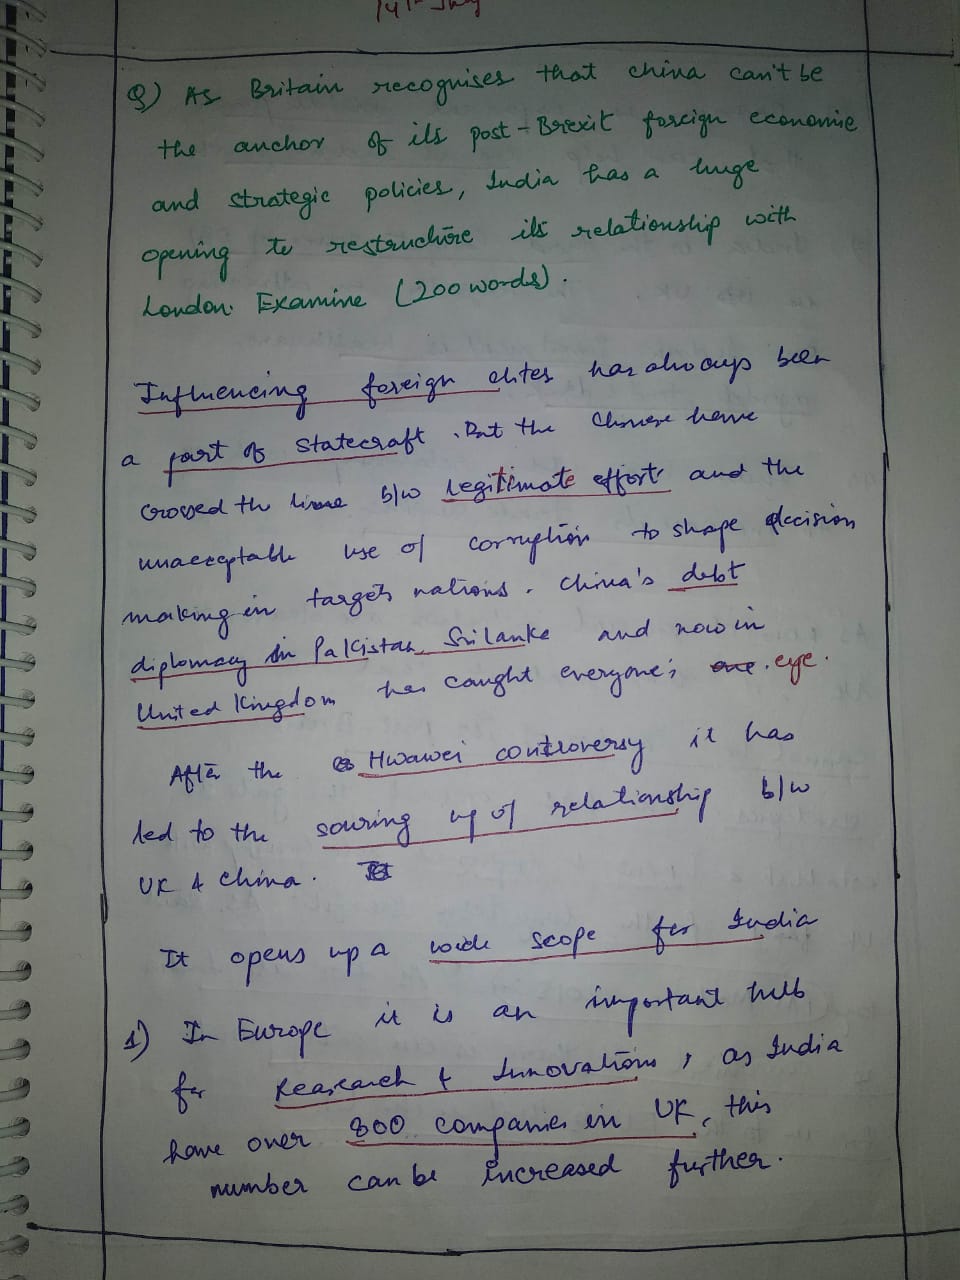 14th July
Q) As Britain recognises that china can't be
the anchor of its post-Brexit foreign economic
and strategic policies, India has a huge
opening to restructure its relationship with
London. Examine (200 words).
Influencing foreign elites has always been
a part of statecraft. But the Chinese have
crossed the line b/w legitimate efforts and the
unacceptable use of corruption to shape decision
making in target nations. China's debt
diplomacy in Pakistan, Sri lanka and now in
United Kingdom has caught everyone's eye.
After the Hwawei controversy it has
led to the souring up of relationship b/w
UK & China.
It opens up a wide scope for India
1) In Europe it is an important hub
for Reasearch & Innovations, as India
have over 800 companies in UK, this
number can be increased further.